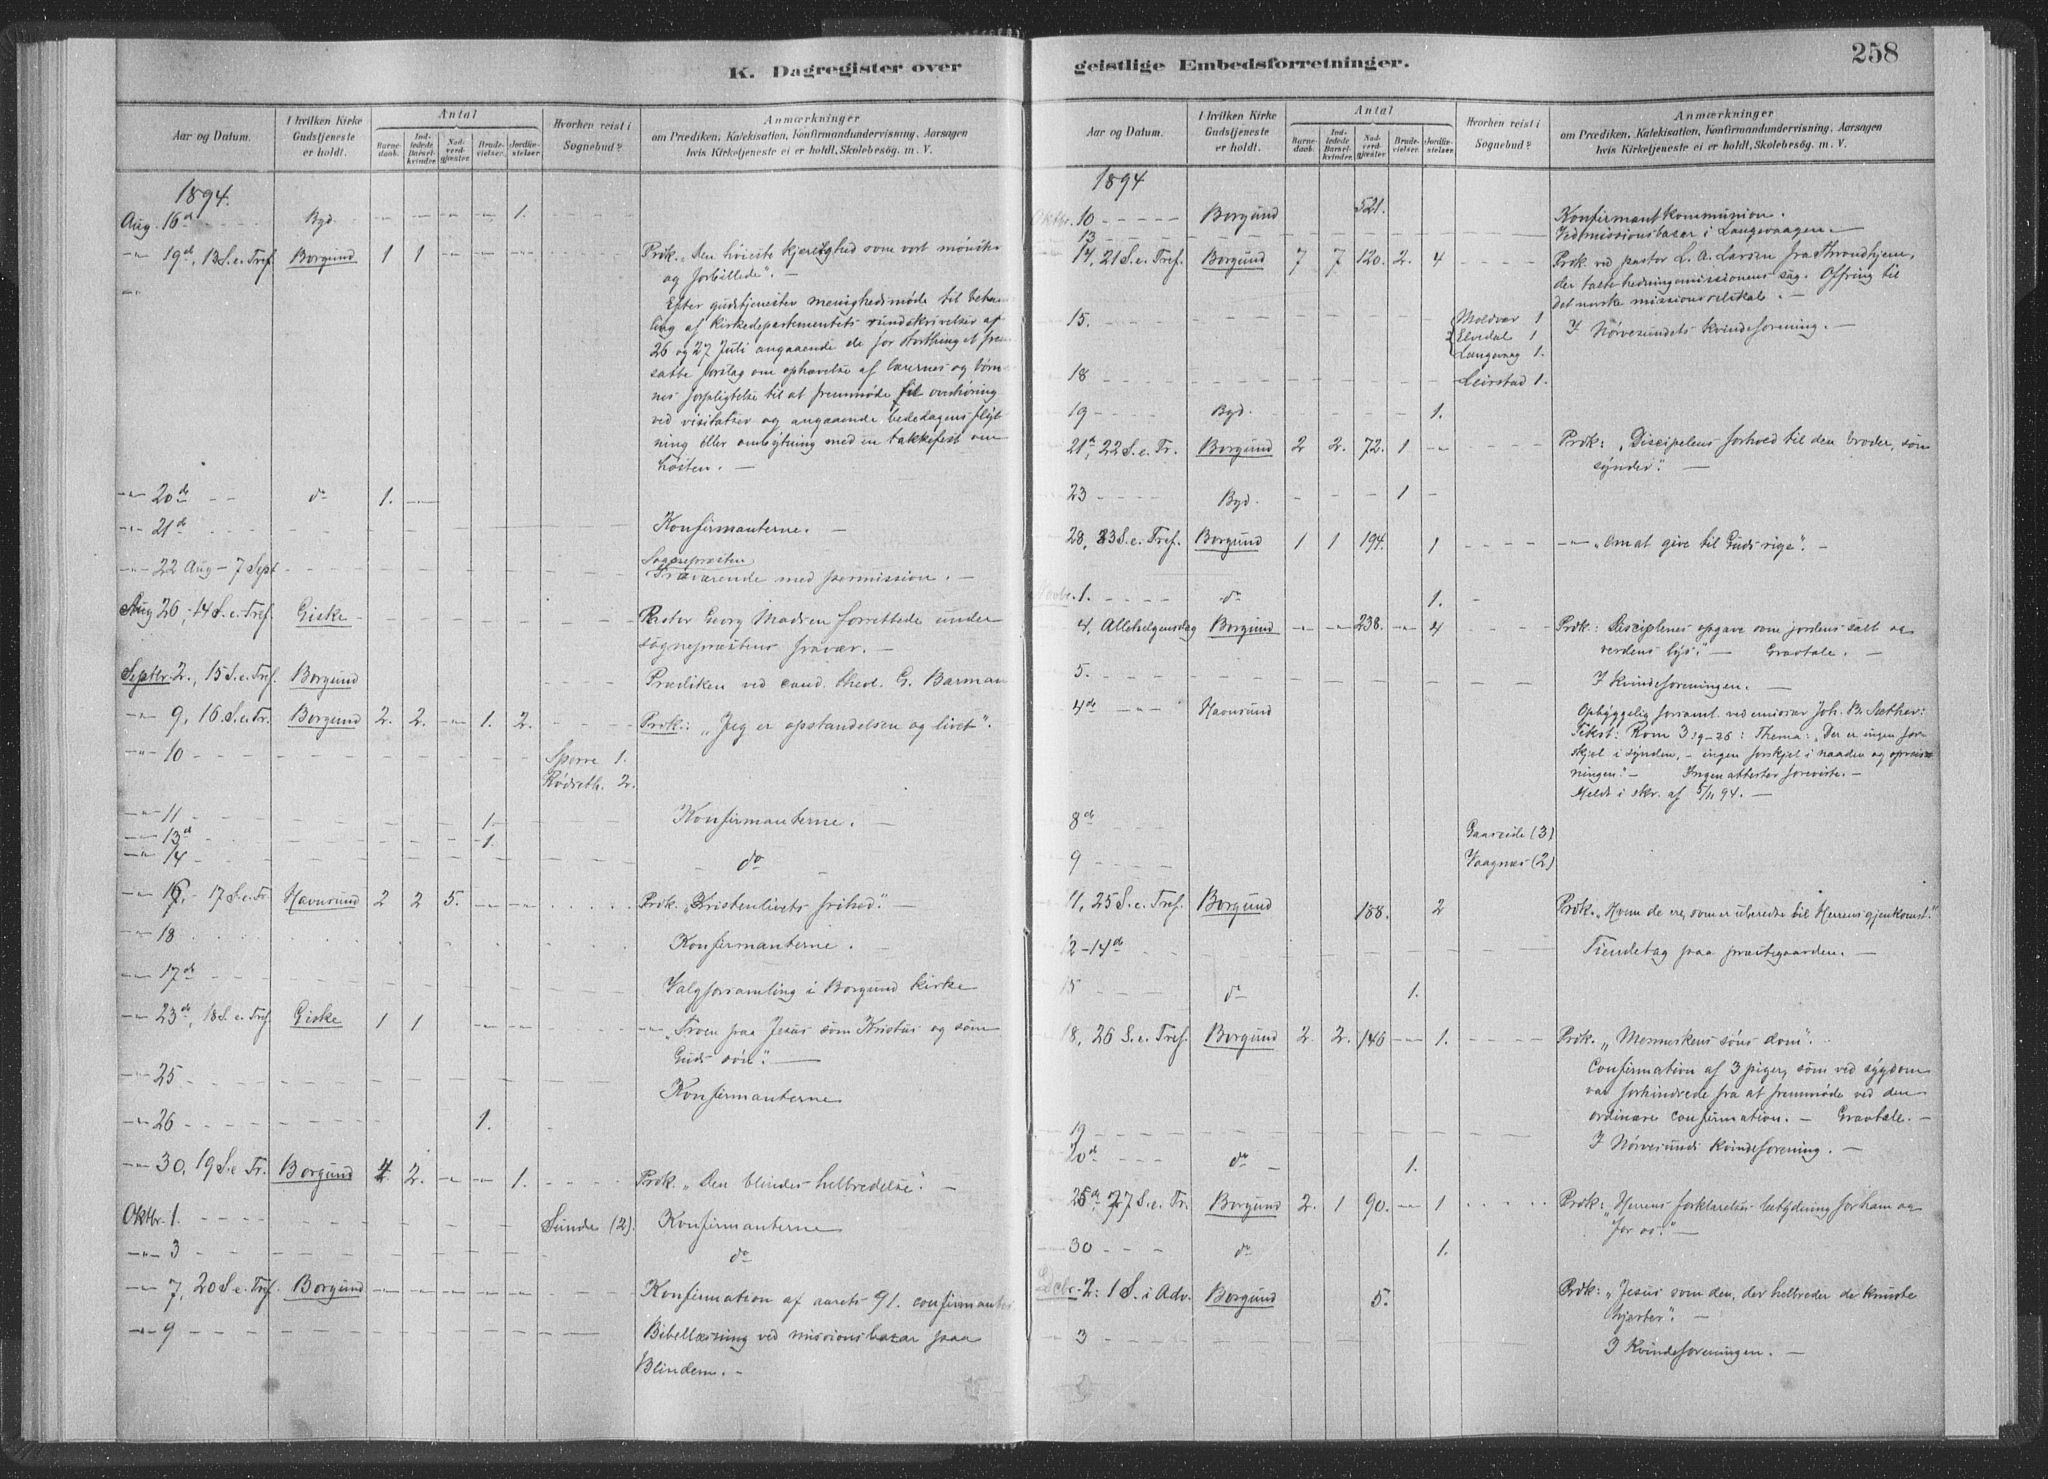 K. Dagregister over
Aar og Datum.
I hvilken Kirke Gudstjeneste er holdt.
Antal
Barne-daab.
Ind-ledede Barsel-kvinder.
Nad-verd-gjæster
Brude-vielser.
Jordfæ-stelser.
Hvorhen reist i Sognebud?
Anmærkninger
om Prædiken, Katekisation, Konfirmandundervisning, Aarsagen
hvis Kirketjeneste ei er holdt, Skolebesøg. m. V.
1894.
Aug. 16d Byd. 1.
19d, 13 S. e. Tref. Borgund 1 1 Prdk. „Den høieste kjerlighed som vort mønster
og forbillede“. —
Efter gudstjenesten menighedsmøde til behand
ling af kirkedepartementets rundskrivelser af
26 og 27 Juli angaaende de for storthinget frem
satte forslag om ophævelse af lærernes og børne
nes forpligtelse til at fremmøde til overhøring
ved visitatser og angaaende bededagens flyt-
ning eller ombytning med en takkefest om
høsten. —
20de do 1.
21de Konfirmanterne. —
22 Aug – 7 Sept Sognepræsten
Fraværende med permission. —
Aug 26, 14 S. e. Tref. Giske Pastor Georg Madsen forrettede under
sognepræstens fravær. —
Septbr 2., 15 S. e. Tref. Borgund Prædiken ved cand. theol. G. Barman
9, 16 S. e. Tr. Borgund 2. 2. 1. 2. Prdk.: „Jeg er opstandelsen og livet“.
10 Sperre 1.
Rødseth. 2.
11 1. Konfirmanterne. —
13d 1.
14 do
16, 17 S. e. Tr. Havnsund 2 2 5. Prdk. „Kristenlivets frihed“ —
18 Konfirmanterne. —
17de Valgforsamling i Borgund kirke
23de, 18 S. e. Tref. Giske 1 1 „Troen paa Jesus som Kristus og som
Guds søn“. —
25 Konfirmanterne
26 1.
30, 19 S. e Tr. Borgund 4 2. 1. Prdk. „Den blindes helbredelse“. —
Oktbr. 1. Sunde (2). Konfirmanterne
3 do
7, 20 S. e. Tref. Borgund Konfirmation af aarets 91. confirmanter
9 Bibellæsning ved missionsbazar paa
Blindem. —
geistlige Embedsforretninger.
258
Aar og Datum.
I hvilken Kirke Gudstjeneste er holdt.
Antal
Barne-daab.
Ind-ledede Barsel-kvinder.
Nad-verd-gjæster
Brude-vielser.
Jordfæ-stelser.
Hvorhen reist i Sognebud?
Anmærkninger
om Prædiken, Katekisation, Konfirmandundervisning, Aarsagen
hvis Kirketjeneste ei er holdt, Skolebesøg m. V.
1894
Oktbr. 10 Borgund 521. Konfirmantkommunion.
13 Ved missionsbazar i Langevaagen.
14, 21 S. e. Tref. Borgund 7 7 120. 2. 4 Prdk. ved pastor L. A. Larsen fra Throndhjem,
der talte hedningemissionens sag. Offring til
det norske missionsselskab. —
15. Moldvær 1 I Nørvesundets kvindeforening. —
Elvedal 1
Langevaag 1.
18 Leirstad 1.
19 Byd. 1.
21n, 22 S. e. Tr. Borgund 2 2. 72. 1 Prdk: „Disciplens forhold til den broder, som
synder“. —
23 Byd. 1
28, 23 S. e. Tref. Borgund 1 1 194. 1 „Om at give til Guds rige“. —
Novbr. 1. do 1.
4, Allehelgensdag Borgund 238. 4 Prdk: Disciplenes opgave som jordens salt og
verdens lys“. — Gravtale. —
5. I kvindeforeningen. —
4de Havnsund Opbyggelig forsaml. ved emissær Joh. B. Sæther:
Tekst: Rom 3 19–26: Thema: „Der er ingen for-
skjel i synden, – ingen forskjel i naaden og opreis-
ningen“. — Ingen attester foreviste. —
Meldt i skr. af 5/11 94. —
8de Gaaseide (3)
9 Vaagnes (2)
11, 25 S. e. Tref. Borgund 188. 2 Prdk. „Hvem de er, som er uberedte til Herrens gjenkomst.“
12–14de Tiendetag paa præstegaarden. —
15 do 1.
18, 26 S. e. Tref. Borgund 2. 2. 146 1. Prdk. „Menneskens søns dom“.
Confirmation af 3 piger, som ved sygdom
var forhindrede fra at fremmøde ved den
ordinære confirmation. — Gravtale. —
19 I Nørvesunds kvindeforening. —
20de do 1.
25de 27 S. e. Tr. Borgund 2. 1 90. 1 Prdk: Herrens forklarelses betydning for ham og
for os“. —
30 do 1.
Dcbr. 2: 1 S. i Adv. Borgund 5. Prdk: „Jesus som den, der helbreder de knuste
hjerter“. —
3 I Kvindeforeningen. —